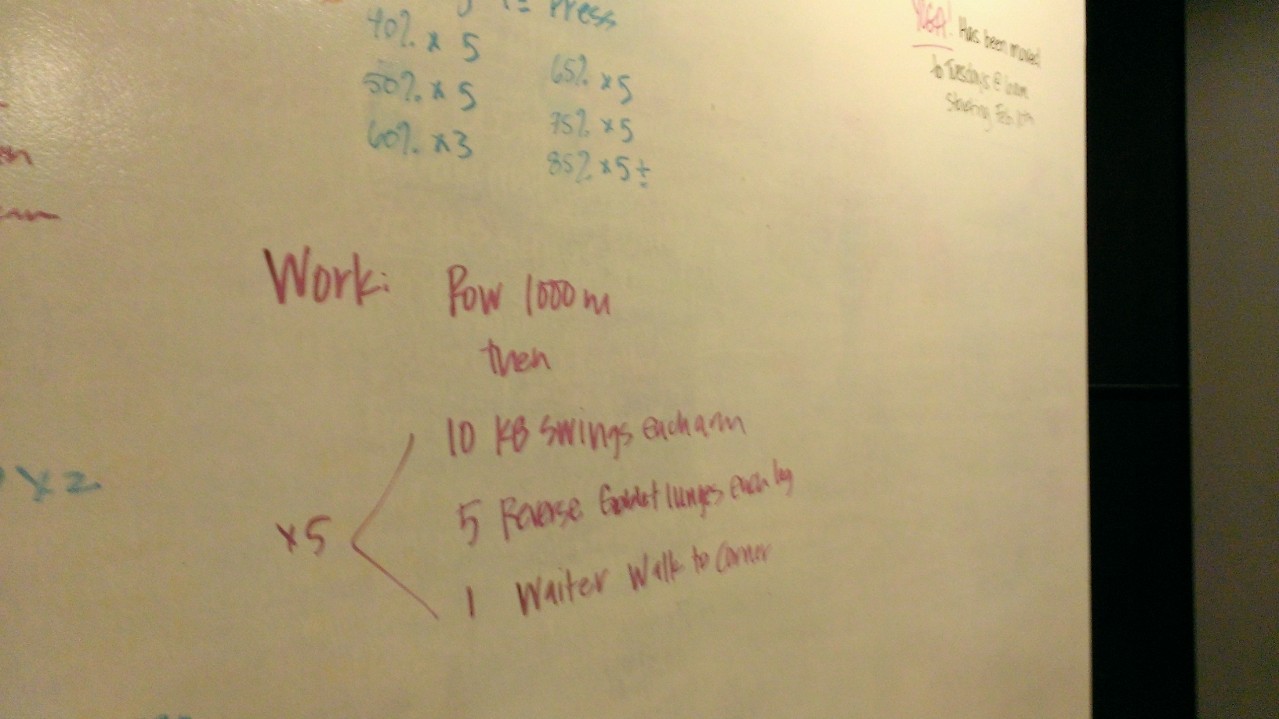 Press
40% x 5
50% x 5
60% x 3
65% x 5
75% x 5
85% x 5±
YOGA! Has been moved
to Tuesdays @
Starting Feb
Work: Row 1000m
then
10 KB Swings each arm
x5
5 Reverse Goblet lunges each leg
1 Waiter Walk to Corner
x 2